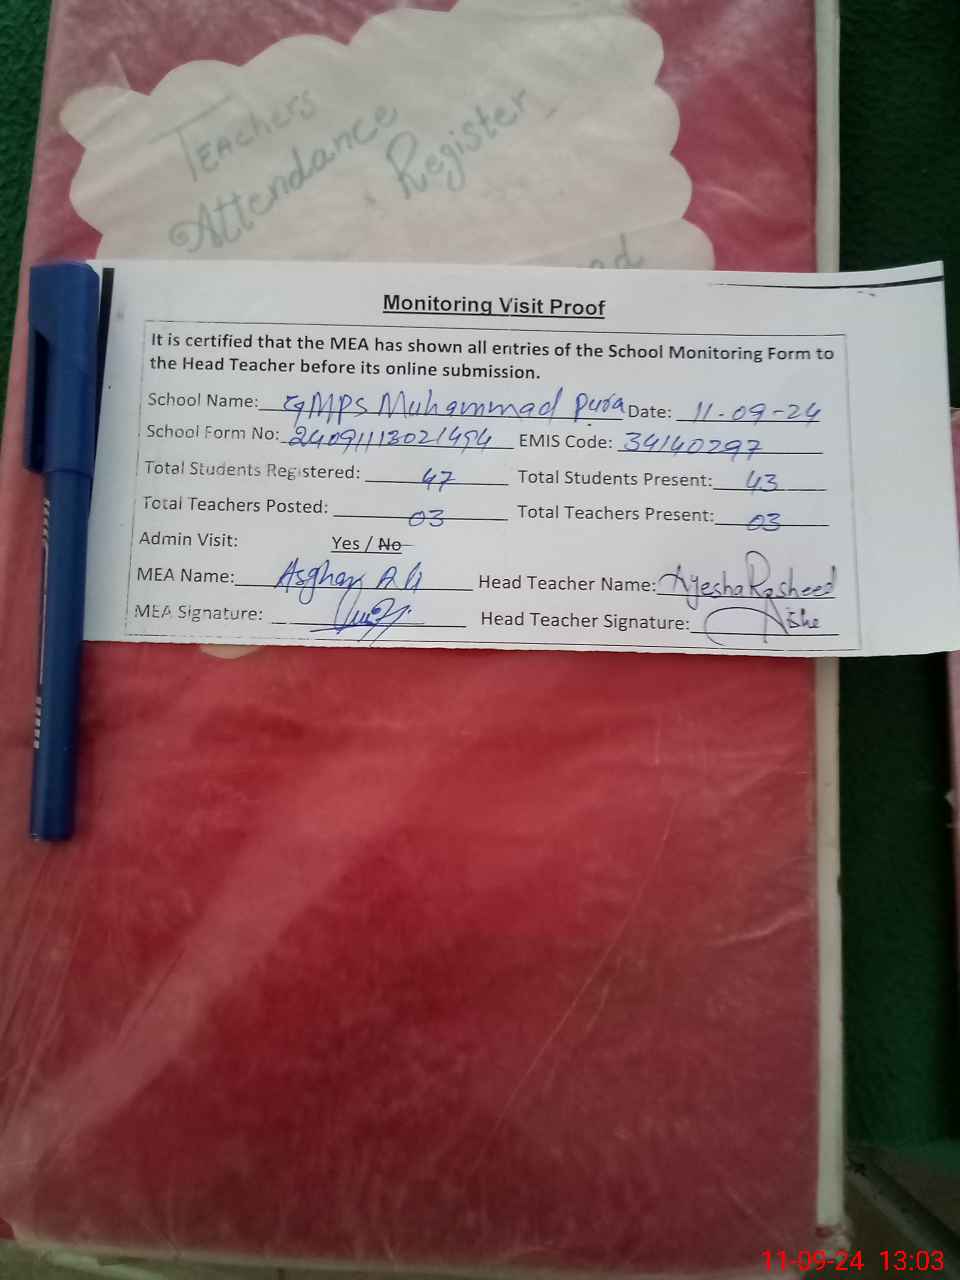 Teachers
Attendance
Register
Monitoring Visit Proof
It is certified that the MEA has shown all entries of the School Monitoring Form to
the Head Teacher before its online submission.
School Name: GMPS Muhammad Pura Date: 11-09-24
School Form No: EMIS Code: 34140297
Total Students Registered: 47 Total Students Present: 43
Total Teachers Posted: 03 Total Teachers Present: 03
Admin Visit: Yes / No
MEA Name: Asghar Ali Head Teacher Name: Ayesha Rasheed
MEA Signature: Head Teacher Signature:
11-09-24 13:03